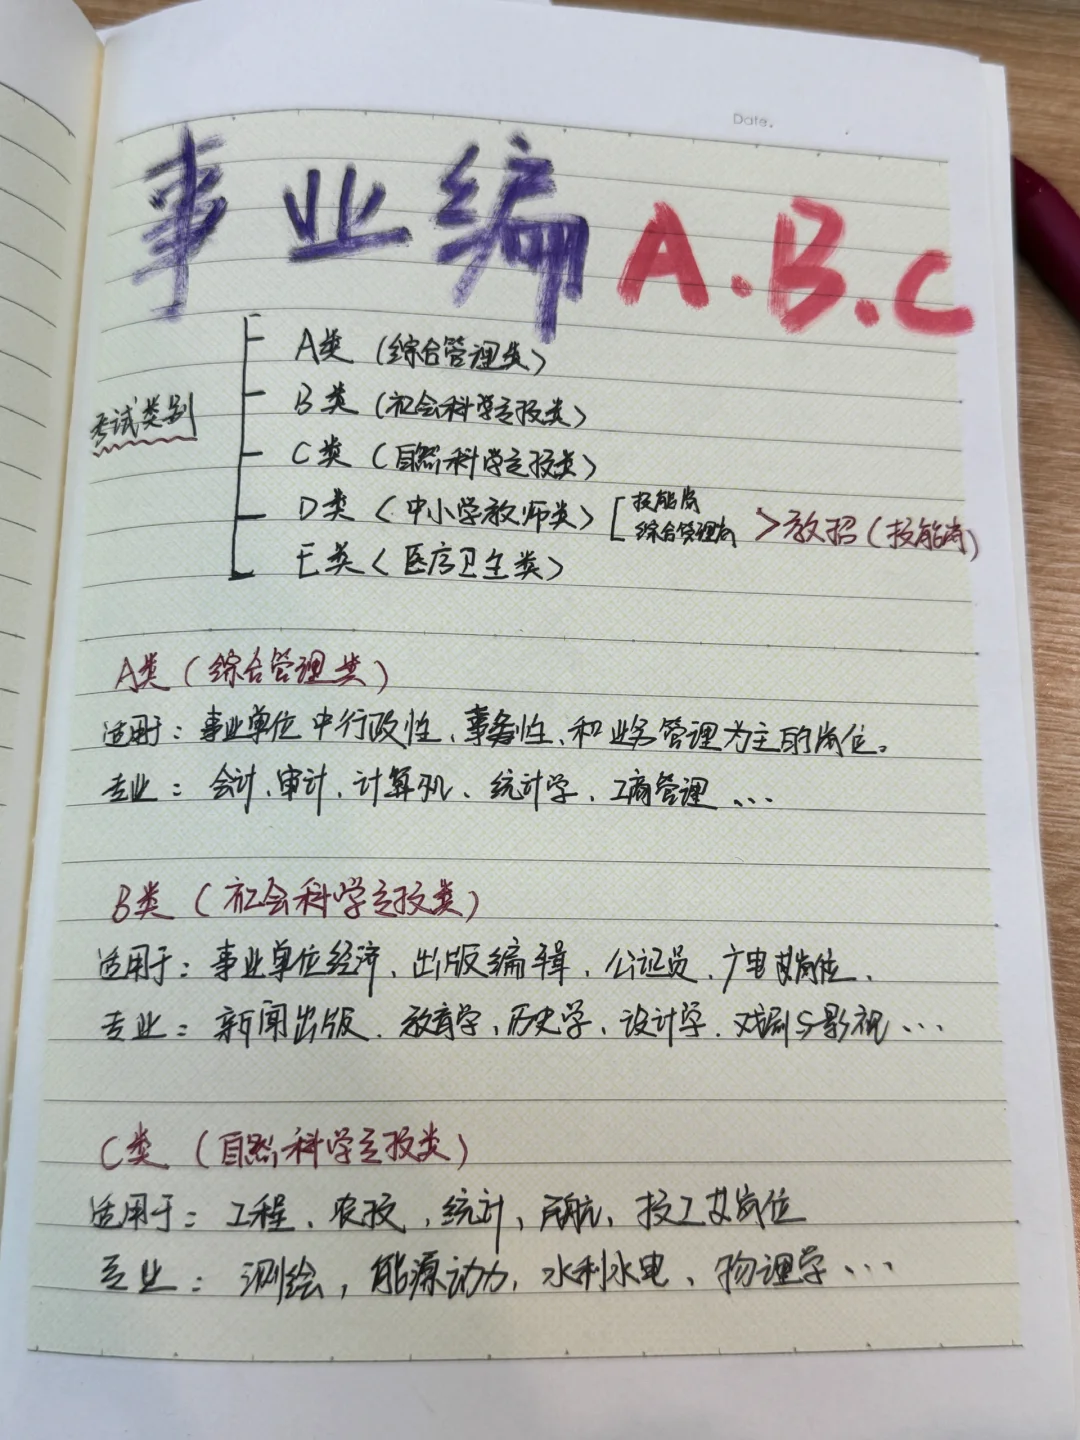 Date.
事业编 A.B.C
考试类别
A类（综合管理类）
B类（社会科学专技类）
C类（自然科学专技类）
D类（中小学教师类） 技能岗 综合管理岗 > 教招（技能岗）
E类（医疗卫生类）
A类（综合管理类）
适用于：事业单位中行政性、事务性、和业务管理为主的岗位。
专业：会计、审计、计算机、统计学、工商管理...
B类（社会科学专技类）
适用于：事业单位经济、出版编辑、公证员、广电 岗位、
专业：新闻出版、教育学、历史学、设计学、戏剧与影视...
C类（自然科学专技类）
适用于：工程、农技，统计，民航，技工 岗位
专业：测绘，能源动力，水利水电、物理学...